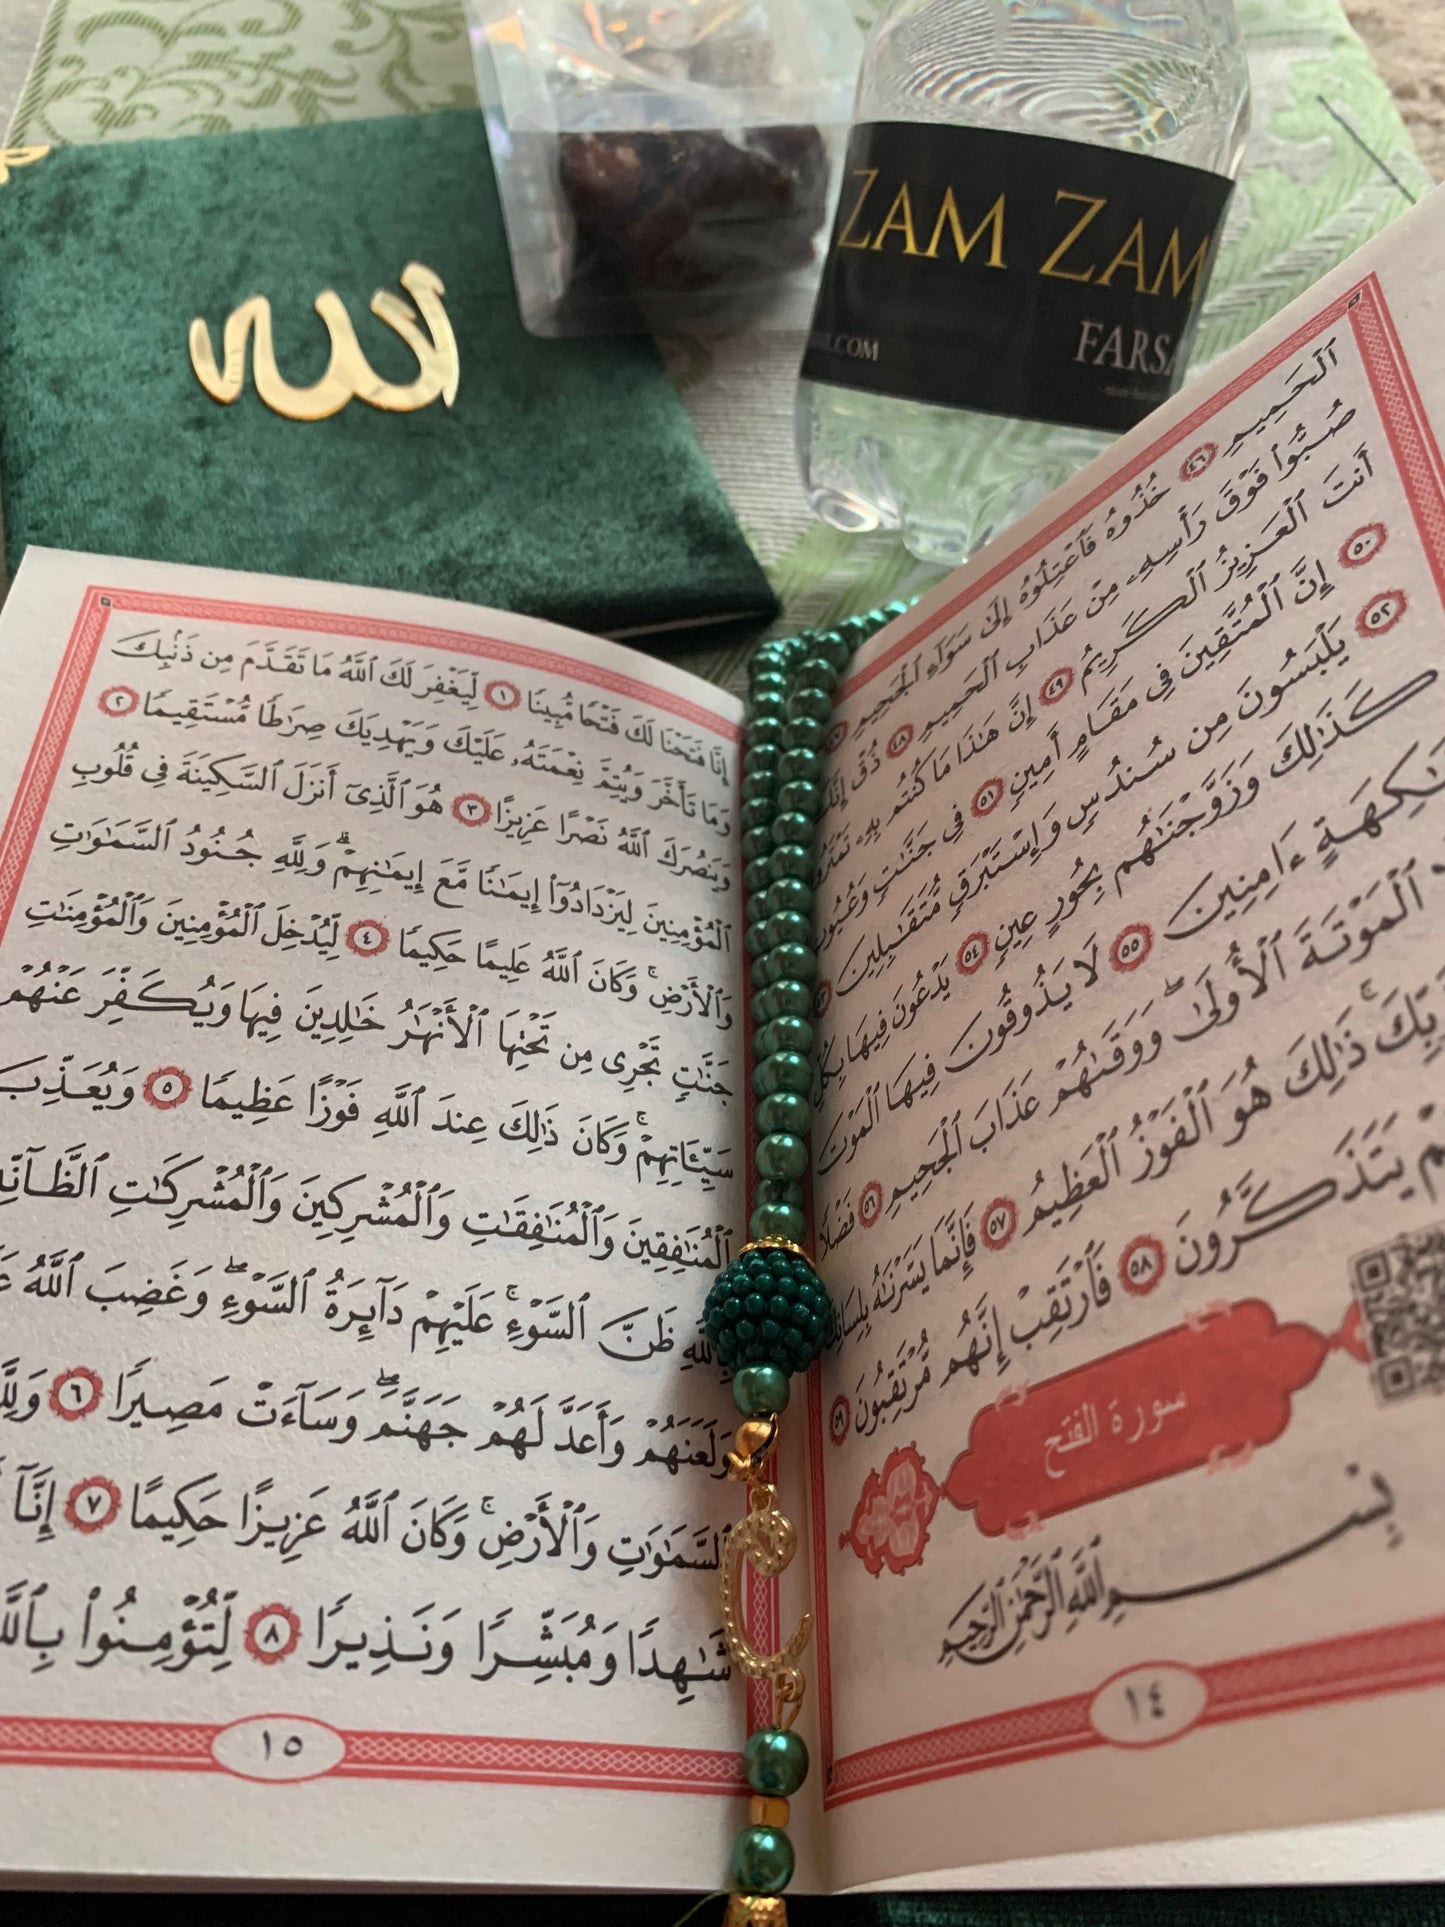 الله
ZAM ZAM
.COM
FARSA
ٱلْحَمِيمِ ٤٦ خُذُوهُ فَٱعْتِلُوهُ إِلَىٰ سَوَآءِ ٱلْجَحِيمِ ٤٧
صُبُّوا۟ فَوْقَ رَأْسِهِۦ مِنْ عَذَابِ ٱلْحَمِيمِ ٤٨ ذُقْ إِنَّكَ
أَنتَ ٱلْعَزِيزُ ٱلْكَرِيمُ ٤٩ إِنَّ هَٰذَا مَا كُنتُم بِهِۦ تَمْتَرُونَ
٥٠ إِنَّ ٱلْمُتَّقِينَ فِى مَقَامٍ أَمِينٍ ٥١ فِى جَنَّٰتٍ وَعُيُونٍ
٥٢ يَلْبَسُونَ مِن سُندُسٍ وَإِسْتَبْرَقٍ مُّتَقَٰبِلِينَ ٥٣
كَذَٰلِكَ وَزَوَّجْنَٰهُم بِحُورٍ عِينٍ ٥٤ يَدْعُونَ فِيهَا بِكُلِّ
فَٰكِهَةٍ ءَامِنِينَ ٥٥ لَا يَذُوقُونَ فِيهَا ٱلْمَوْتَ
ٱلْمَوْتَةَ ٱلْأُولَىٰ ۖ وَوَقَىٰهُمْ عَذَابَ ٱلْجَحِيمِ ٥٦ فَضْلًا
رَّبِّكَ ۚ ذَٰلِكَ هُوَ ٱلْفَوْزُ ٱلْعَظِيمُ ٥٧ فَإِنَّمَا يَسَّرْنَٰهُ بِلِسَانِكَ
يَتَذَكَّرُونَ ٥٨ فَٱرْتَقِبْ إِنَّهُم مُّرْتَقِبُونَ ٥٩
سورة الفتح
بِسْمِ ٱللَّهِ ٱلرَّحْمَٰنِ ٱلرَّحِيمِ
١٤
إِنَّا فَتَحْنَا لَكَ فَتْحًا مُّبِينًا ١ لِّيَغْفِرَ لَكَ ٱللَّهُ مَا تَقَدَّمَ مِن ذَنۢبِكَ
وَمَا تَأَخَّرَ وَيُتِمَّ نِعْمَتَهُۥ عَلَيْكَ وَيَهْدِيَكَ صِرَٰطًا مُّسْتَقِيمًا ٢
وَيَنصُرَكَ ٱللَّهُ نَصْرًا عَزِيزًا ٣ هُوَ ٱلَّذِىٓ أَنزَلَ ٱلسَّكِينَةَ فِى قُلُوبِ
ٱلْمُؤْمِنِينَ لِيَزْدَادُوٓا۟ إِيمَٰنًا مَّعَ إِيمَٰنِهِمْ ۗ وَلِلَّهِ جُنُودُ ٱلسَّمَٰوَٰتِ
وَٱلْأَرْضِ ۚ وَكَانَ ٱللَّهُ عَلِيمًا حَكِيمًا ٤ لِّيُدْخِلَ ٱلْمُؤْمِنِينَ وَٱلْمُؤْمِنَٰتِ
جَنَّٰتٍ تَجْرِى مِن تَحْتِهَا ٱلْأَنْهَٰرُ خَٰلِدِينَ فِيهَا وَيُكَفِّرَ عَنْهُمْ
سَيِّـَٔاتِهِمْ ۚ وَكَانَ ذَٰلِكَ عِندَ ٱللَّهِ فَوْزًا عَظِيمًا ٥ وَيُعَذِّبَ
ٱلْمُنَٰفِقِينَ وَٱلْمُنَٰفِقَٰتِ وَٱلْمُشْرِكِينَ وَٱلْمُشْرِكَٰتِ ٱلظَّآنِّينَ
بِٱللَّهِ ظَنَّ ٱلسَّوْءِ ۚ عَلَيْهِمْ دَآئِرَةُ ٱلسَّوْءِ ۖ وَغَضِبَ ٱللَّهُ
وَلَعَنَهُمْ وَأَعَدَّ لَهُمْ جَهَنَّمَ ۖ وَسَآءَتْ مَصِيرًا ٦ وَلِلَّهِ
ٱلسَّمَٰوَٰتِ وَٱلْأَرْضِ ۚ وَكَانَ ٱللَّهُ عَزِيزًا حَكِيمًا ٧ إِنَّآ
شَٰهِدًا وَمُبَشِّرًا وَنَذِيرًا ٨ لِّتُؤْمِنُوا۟ بِٱللَّهِ
١٥